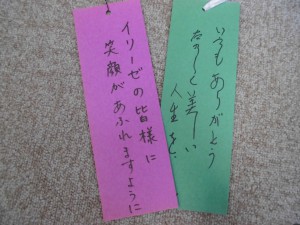 イリーゼの皆様に
笑顔があふれますように
いつもありがとう
たのしく美しい
人生を